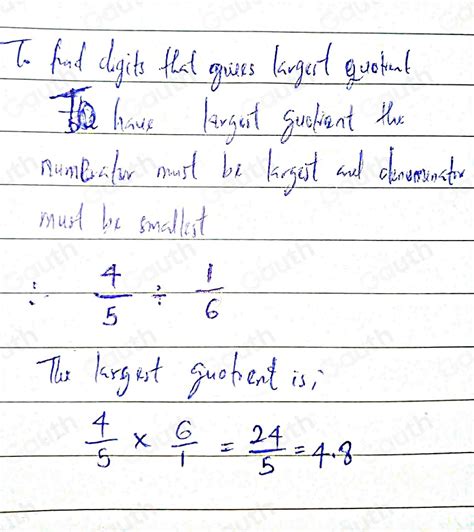 To find digits that gives largest quotient
To have largest quotient the
numerator must be largest and denominator
must be smallest
∴ 4/5 ÷ 1/6
The largest quotient is;
4/5 × 6/1 = 24/5 = 4.8